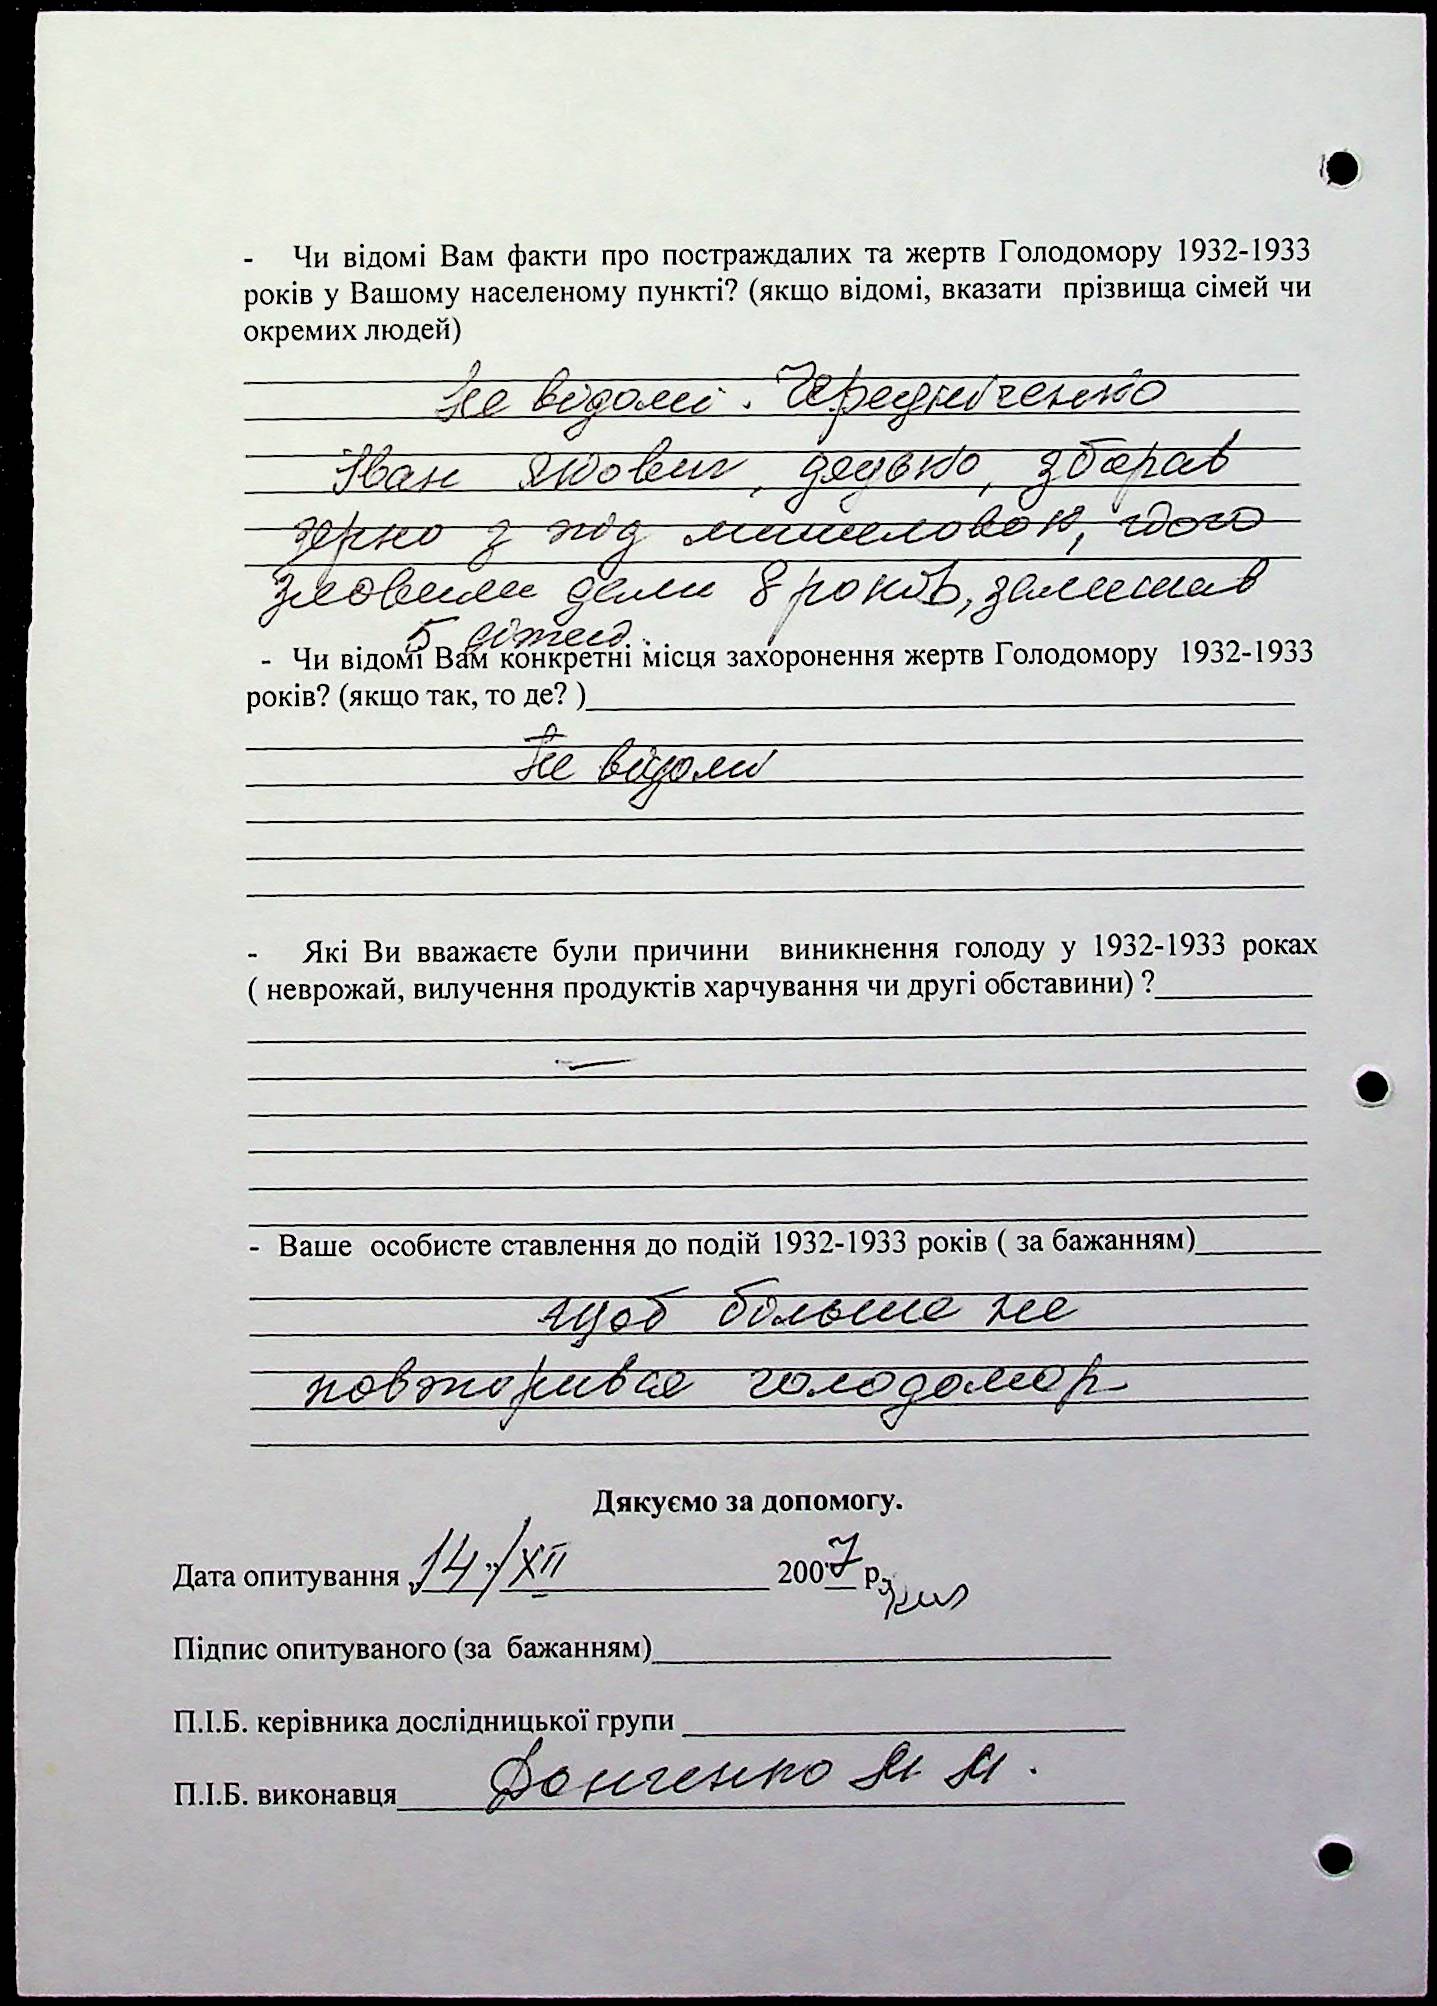 - Чи відомі Вам факти про постраждалих та жертв Голодомору 1932-1933
років у Вашому населеному пункті? (якщо відомі, вказати прізвища сімей чи
окремих людей)
Не відомі. Чередніченко
Іван Якович, дядько, збірав
зерно з під мишеловок, його
зловили дали 8 років, залишив
5 дітей.
- Чи відомі Вам конкретні місця захоронення жертв Голодомору 1932-1933
років? (якщо так, то де? )
Не відомі
- Які Ви вважаєте були причини виникнення голоду у 1932-1933 роках
( неврожай, вилучення продуктів харчування чи другі обставини) ?
—
- Ваше особисте ставлення до подій 1932-1933 років ( за бажанням)
щоб більше не
повторився голодомор
Дякуємо за допомогу.
Дата опитування „14"/XII 2007 р.
Підпис опитуваного (за бажанням)
П.І.Б. керівника дослідницької групи
П.І.Б. виконавця Донченко М М.